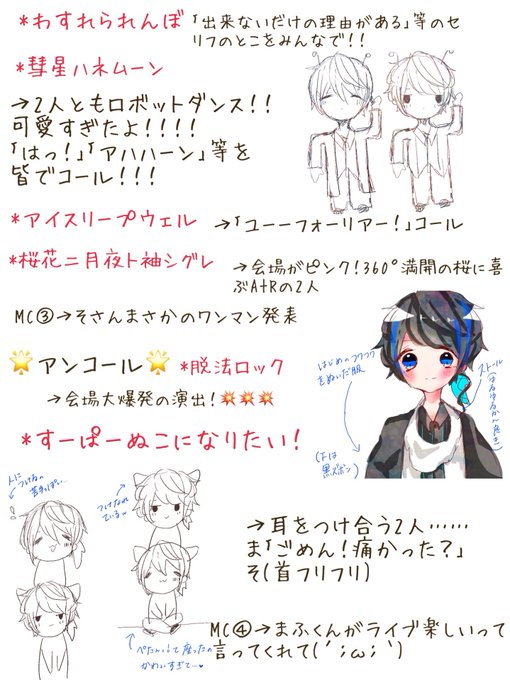 *わすれられんぼ「出来ないだけの理由がある」等のセ
リフのとこをみんなで!!
*彗星ハネムーン
→2人ともロボットダンス!!
可愛すぎたよ!!!!
「はっ!」「アハハーン」等を
皆でコール!!!
*アイスリープウェル →「ユーーフォーリアー!」コール
*桜花ニ月夜ト袖シグレ →会場がピンク!360°満開の桜に喜
ぶA+Rの2人
MC③→そさんまさかのワンマン発表
🌟アンコール🌟 *脱法ロック
→会場大爆発の演出!💥💥💥
はじめのフワフワ
をぬいだ服
ストール
(下は
黒ズボン)
*すーぱーぬこになりたい!
人に
つけなれ
ている
→耳をつけ合う2人……
ま「ごめん!痛かった?」
そ(首フリフリ)
ぺたんって座ったの
かわいすぎて…
MC④→まふくんがライブ楽しいって
言ってくれて(´;ω;`)